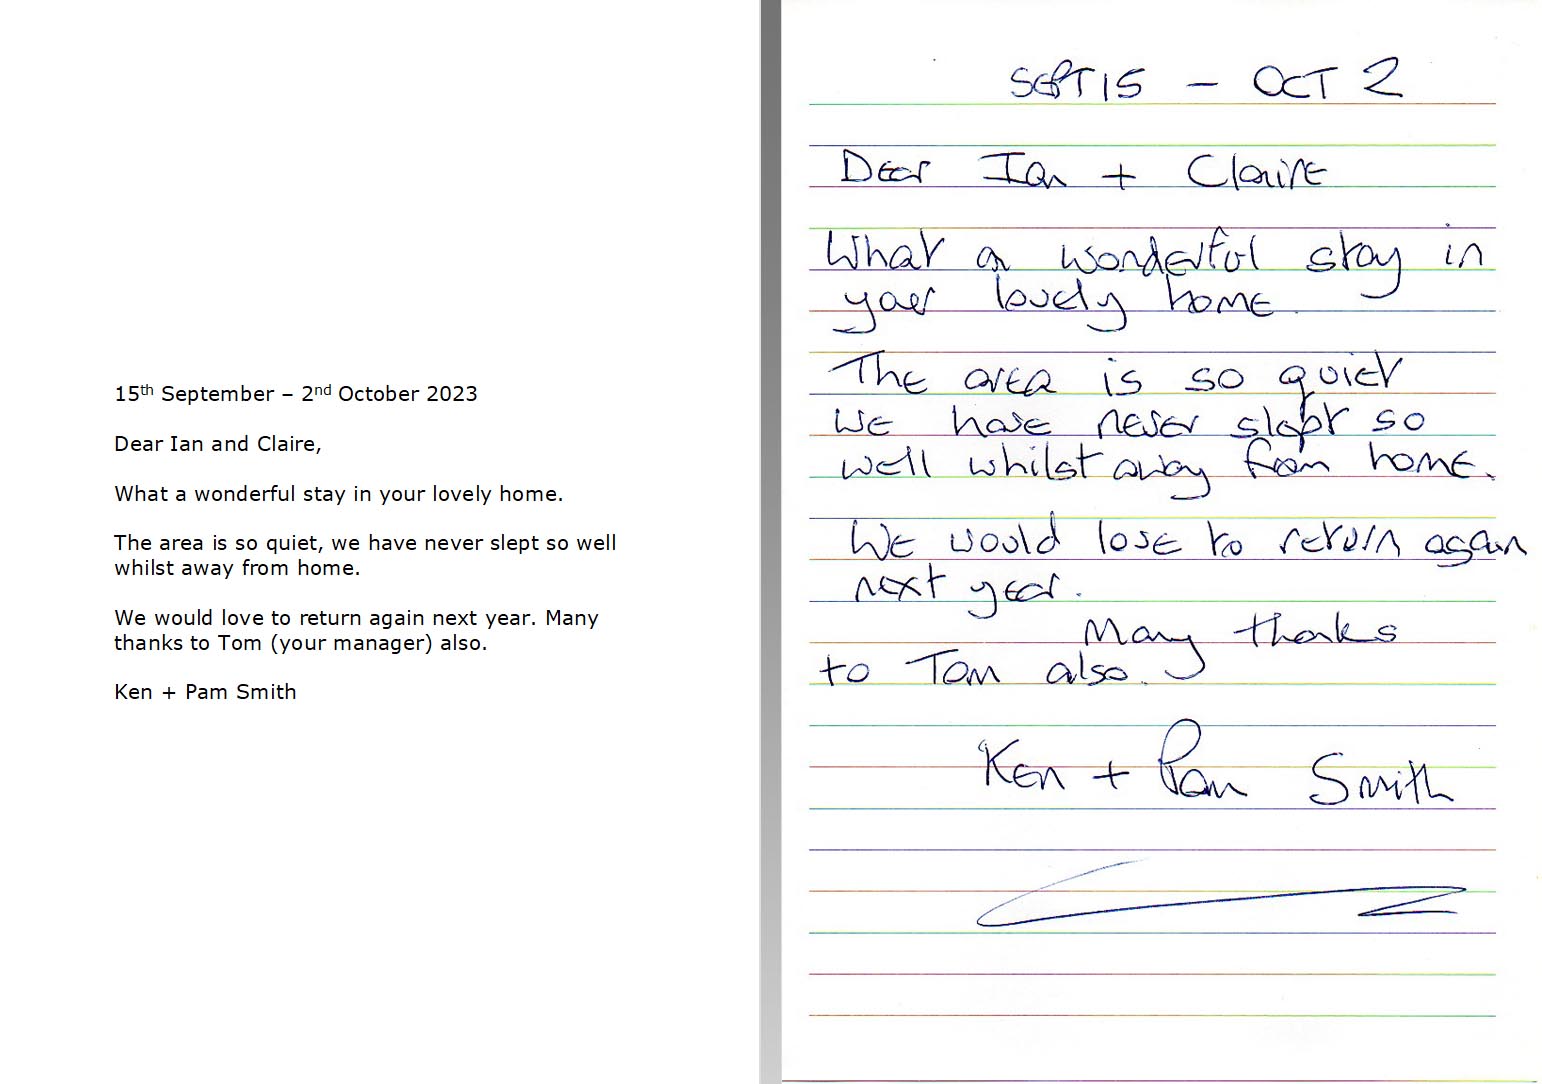 15th September – 2nd October 2023
Dear Ian and Claire,
What a wonderful stay in your lovely home.
The area is so quiet, we have never slept so well
whilst away from home.
We would love to return again next year. Many
thanks to Tom (your manager) also.
Ken + Pam Smith
SEPT 15 – OCT 2
Dear Ian + Claire
What a wonderful stay in
your lovely home.
The area is so quiet
we have never slept so
well whilst away from home.
We would love to return again
next year.
Many thanks
to Tom also.
Ken + Pam Smith